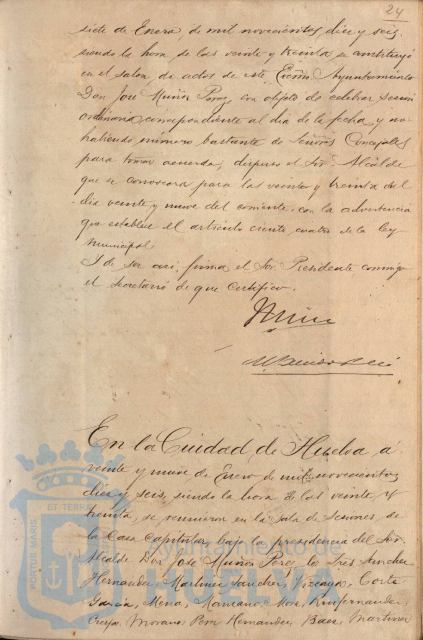 24
siete de Enero de mil novecientos diez y seis,
siendo la hora de las veinte y treinta se constituyó
en el salon de actos de este Excmo Ayuntamiento
Don José Muñoz Perez, con objeto de celebrar sesion
ordinaria correspondiente al dia de la fecha y no
habiendo número bastante de Señores Concejales
para tomar acuerdo, dispuso el Sor Alcalde
que se convocara para las veinte y treinta del
dia veinte y nueve del corriente, con la advertencia
que establece el artículo ciento cuatro de la ley
Municipal.
I de ser asi, firma el Sor Presidente conmigo
el Secretario de que certifico.
En la Ciudad de Huelva á
veinte y nueve de Enero de mil novecientos
diez y seis, siendo la hora de las veinte y
treinta, se reunieron en la Sala de Sesiones de
la Casa Capitular, bajo la presidencia del Sor
Alcalde Don José Muñoz Perez, los Sres Sanchez
Hernandez, Martinez Sanchez, Vizcaya, Corte
Garcia, Mena, Manzano, Mora,
Crespo, Morano, Pera Hernandez, Baez, Martinez
Ayuntamiento de
HUELVA
PORTUS MARIS
ET TERRAE